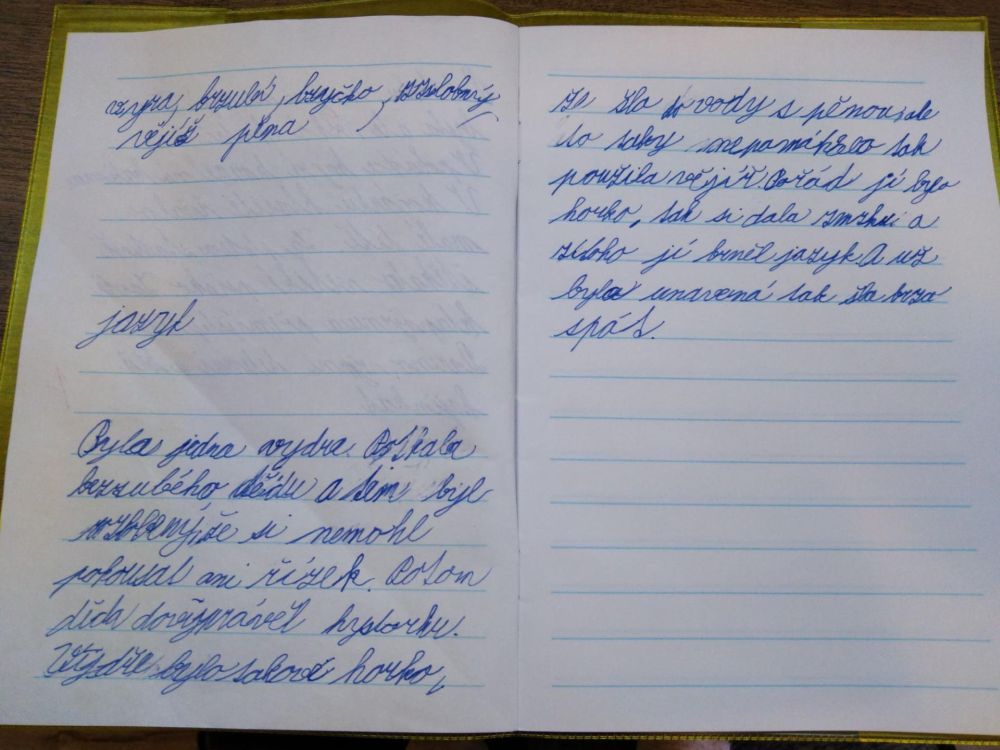 vyza, brzubí, brzyčko, zzlobný
vějíž pěna
jazyk
Byla jedna vydra. Potkala
bezzubého dědu a ten byl
že si nemohl
pokousat ani řízek. Potom
děda dovyprávěl hystorku.
Vydře bylo takové horko,
že šla do vody s pěnou, ale
to taky nepomáhalo tak
použila vějíř. Pořád jí bylo
horko, tak si dala zmrzku a
z toho jí brněl jazyk. A už
byla unavená tak šla brza
spát.